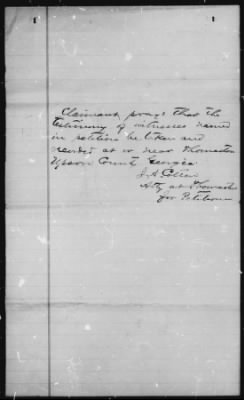 Claimant prays that the
testimony of witnesses named
in petition be taken and
recorded at or near Thomaston
Upson County Georgia
J. A. Cotten
Atty at Thomaston
for Petitioner